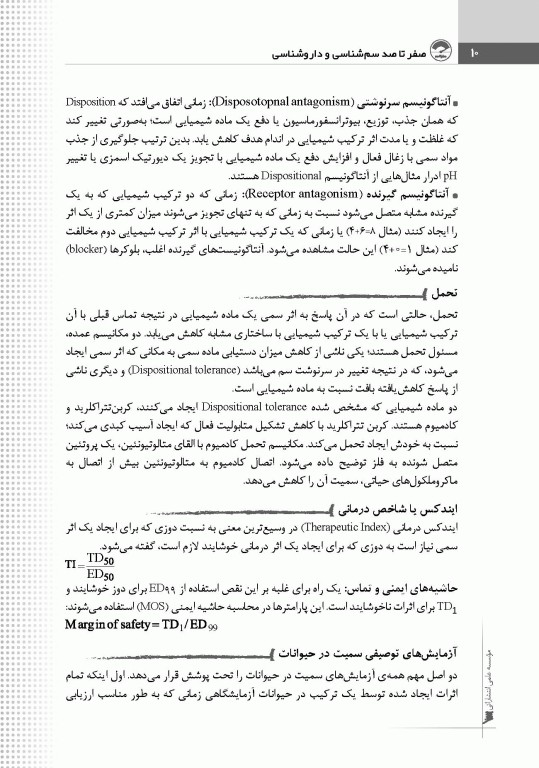 ۱۰ صفر تا صد سم‌شناسی و داروشناسی
■ آنتاگونیسم سرنوشتی (Disposotopnal antagonism): زمانی اتفاق می‌افتد که Disposition
که همان جذب، توزیع، بیوترانسفورماسیون یا دفع یک ماده شیمیایی است؛ به‌صورتی تغییر کند
که غلظت و یا مدت اثر ترکیب شیمیایی در اندام هدف کاهش یابد. بدین ترتیب جلوگیری از جذب
مواد سمی با زغال فعال و افزایش دفع یک ماده شیمیایی با تجویز یک دیورتیک اسمزی یا تغییر
pH ادرار مثال‌هایی از آنتاگونیسم Dispositional هستند.
■ آنتاگونیسم گیرنده (Receptor antagonism): زمانی که دو ترکیب شیمیایی که به یک
گیرنده مشابه متصل می‌شود نسبت به زمانی که به تنهای تجویز می‌شوند میزان کمتری از یک اثر
را ایجاد کنند (مثال ۸=۶+۴) یا زمانی که یک ترکیب شیمیایی با اثر ترکیب شیمیایی دوم مخالفت
کند (مثال ۱=۰+۴) این حالت مشاهده می‌شود. آنتاگونیست‌های گیرنده اغلب، بلوکرها (blocker)
نامیده می‌شوند.
تحمل
تحمل، حالتی است که در آن پاسخ به اثر سمی یک ماده شیمیایی در نتیجه تماس قبلی با آن
ترکیب شیمیایی یا با یک ترکیب شیمیایی با ساختاری مشابه کاهش می‌یابد. دو مکانیسم عمده،
مسئول تحمل هستند؛ یکی ناشی از کاهش میزان دستیابی ماده سمی به مکانی که اثر سمی ایجاد
می‌شود، که در نتیجه تغییر در سرنوشت سم می‌باشد (Dispositional tolerance) و دیگری ناشی
از پاسخ کاهش‌یافته بافت نسبت به ماده شیمیایی است.
دو ماده شیمیایی که مشخص شده Dispositional tolerance ایجاد می‌کنند، کربن‌تتراکلرید و
کادمیوم هستند. کربن تتراکلرید با کاهش تشکیل متابولیت فعال که ایجاد آسیب کبدی می‌کند؛
نسبت به خودش ایجاد تحمل می‌کند. مکانیسم تحمل کادمیوم با القای متالوتیونئین، یک پروتئین
متصل شونده به فلز توضیح داده می‌شود. اتصال کادمیوم به متالوتیونئین بیش از اتصال به
ماکروملکول‌های حیاتی، سمیت آن را کاهش می‌دهد.
ایندکس یا شاخص درمانی
ایندکس درمانی (Therapeutic Index) در وسیع‌ترین معنی به نسبت دوزی که برای ایجاد یک اثر
سمی نیاز است به دوزی که برای ایجاد یک اثر درمانی خوشایند لازم است، گفته می‌شود.
TI = TD50 / ED50
حاشیه‌های ایمنی و تماس: یک راه برای غلبه بر این نقص استفاده از ED۹۹ برای دوز خوشایند و
TD1 برای اثرات ناخوشایند است. این پارامترها در محاسبه حاشیه ایمنی (MOS) استفاده می‌شوند:
Margin of safety = TD1 / ED99
آزمایش‌های توصیفی سمیت در حیوانات
دو اصل مهم همه‌ی آزمایش‌های سمیت در حیوانات را تحت پوشش قرار می‌دهد. اول اینکه تمام
اثرات ایجاد شده توسط یک ترکیب در حیوانات آزمایشگاهی زمانی که به طور مناسب ارزیابی
موسسه علمی انتشاراتی